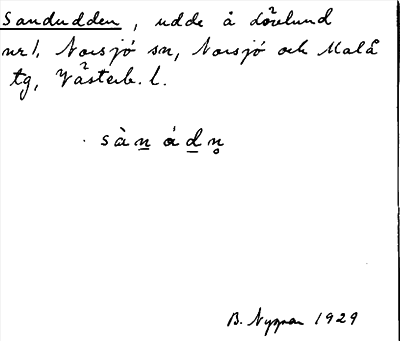 Sandudden, udde å Lövlund
nr 1, Norsjö sn, Norsjö och Malå
tg, Västerb. l.
sàn̲ ád̲n̥
B. Nyman 1929